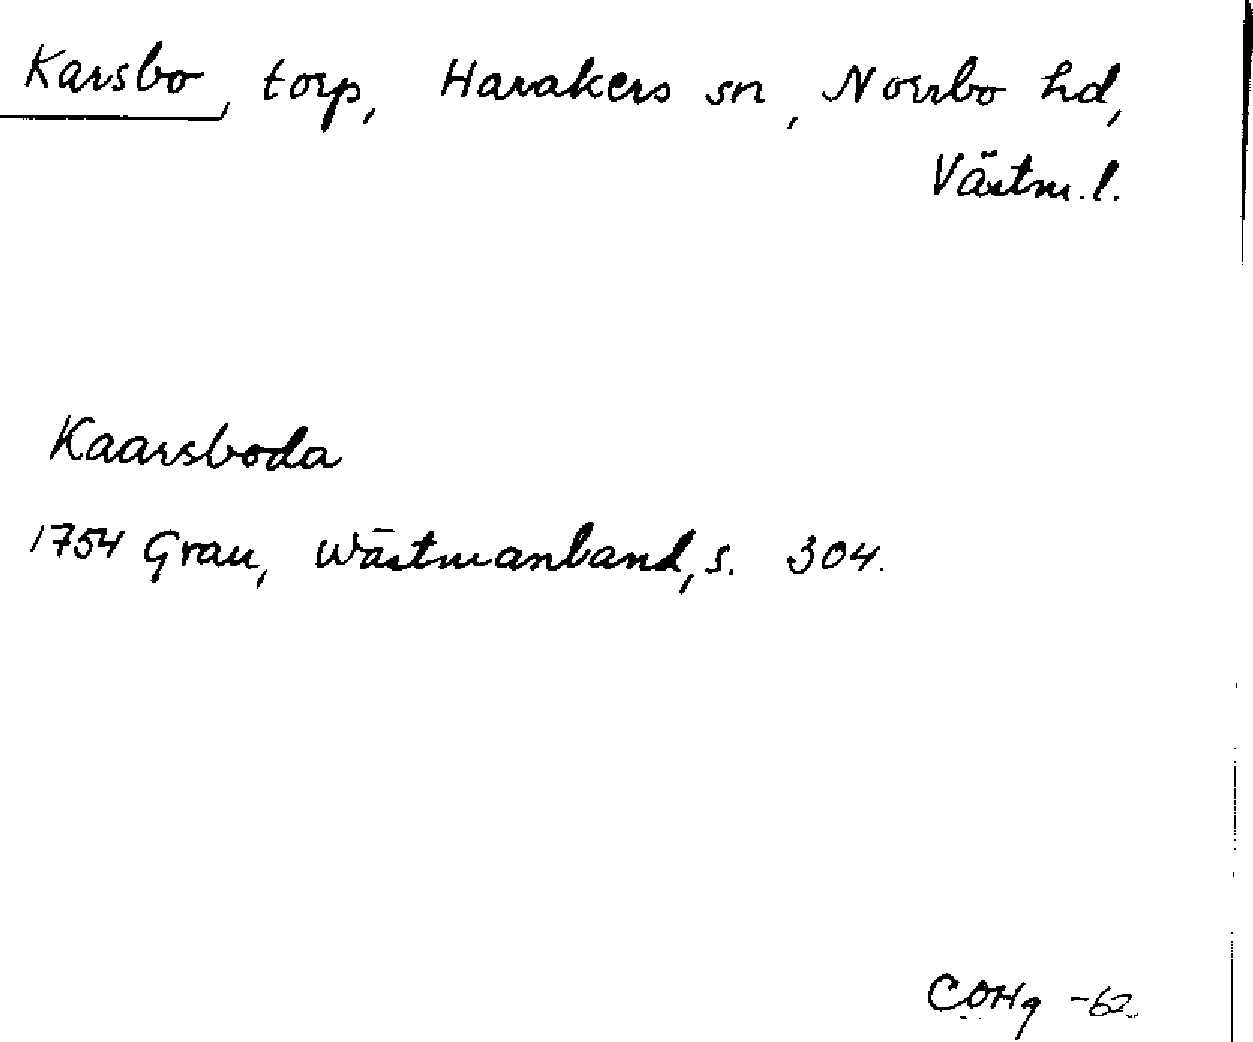 Karsbo, torp, Harakers sn, Norrbo hd,
Västm. l.
Kaarsboda
1754 Grau, Wästmanland, s. 304.
COHg -62